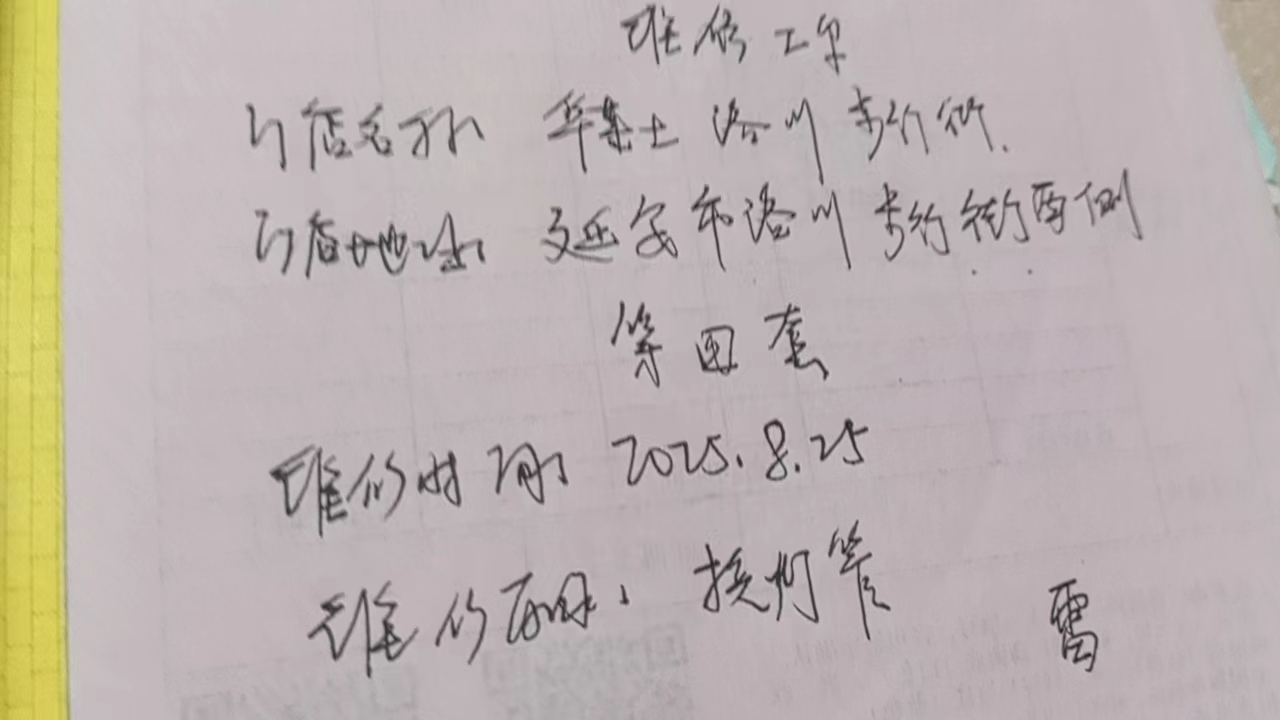 维修工单
门店名称 华莱士洛川步行街.
门店地址 延安市洛川步行街西侧
第四套
维修时间 2025.8.25
维修 换灯管
雷